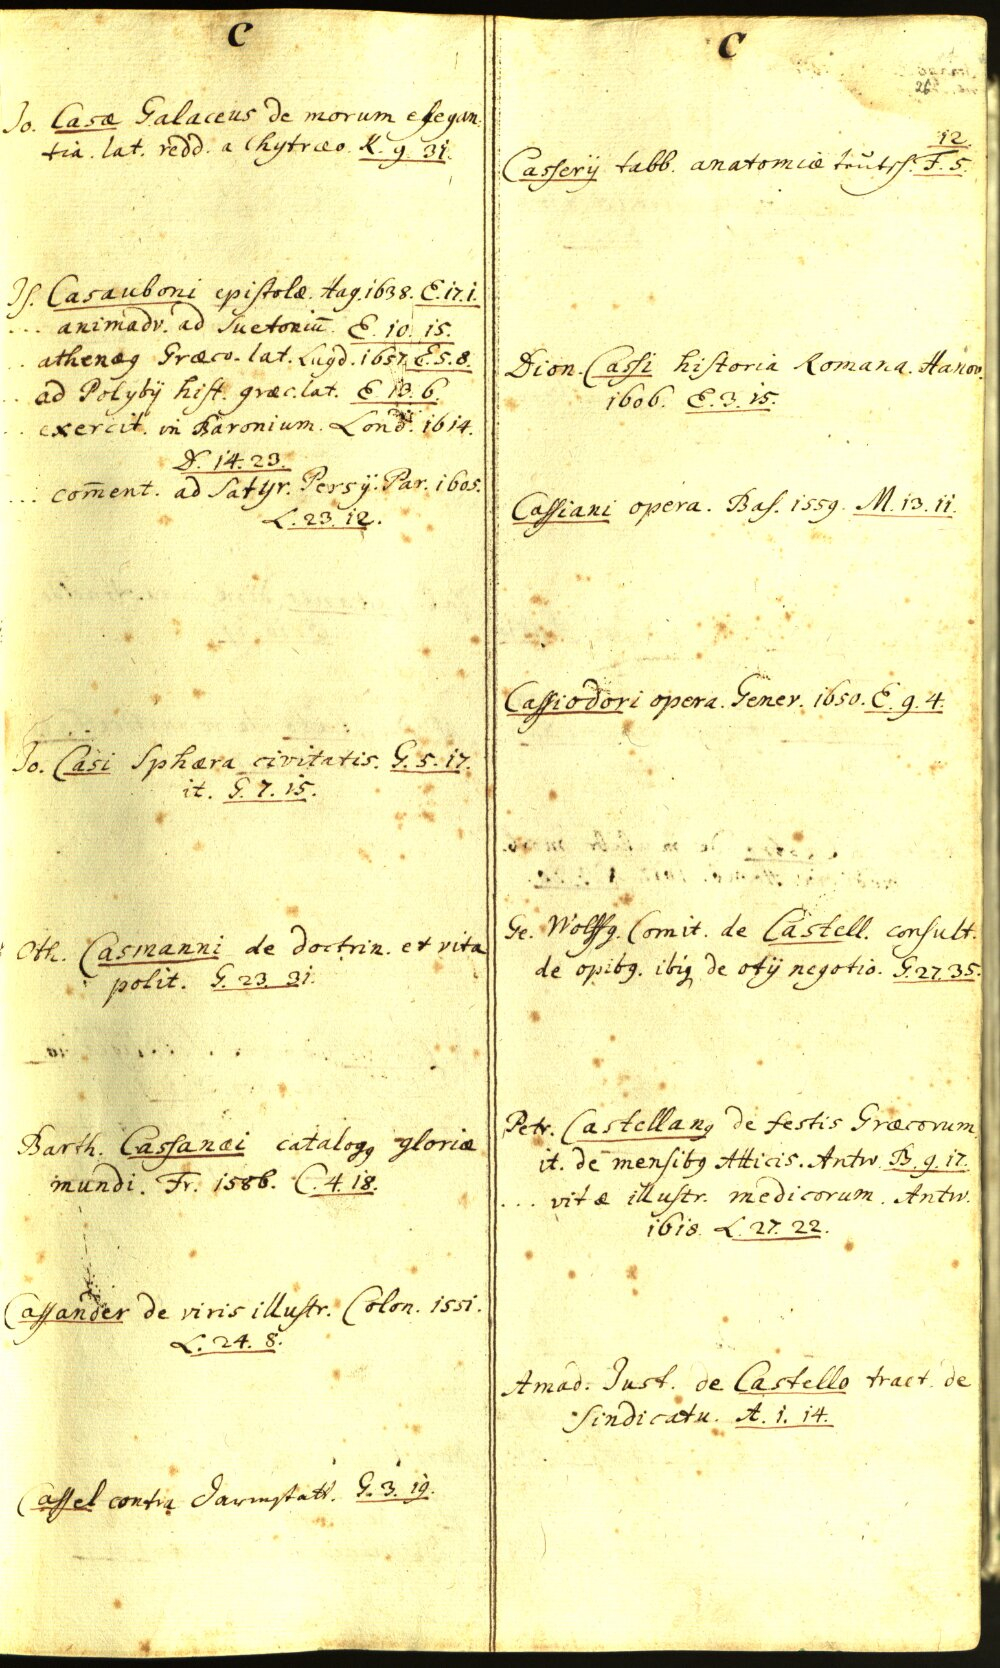 C
Jo. Casæ Galaceus de morum elegan-
tia. lat. redd. a Chytræo. K. 9. 31.
Js. Casauboni epistolæ. Hag. 1638. E. 17. 1.
... animadv. ad Suetoniū. E. 10. 15.
.. athenæg Græco-lat. Lugd. 1657. E. 5. 8.
.. ad Polybÿ hist. græc. lat. E 13. 6.
.. exercit. in Baronium. Lond. 1614.
D. 14. 23.
... com̄ent. ad Satyr. Persÿ. Par. 1605.
L. 23. 12.
Jo. Casi Sphæra civitatis. G. 5. 17.
it. G. 7. 15.
Oth. Casmanni de doctrin. et vita
polit. G. 23. 31.
Barth. Cassanæi catalogg gloriæ
mundi. Fr. 1586. C. 4. 18.
Cassander de viris illustr. Colon. 1551.
L. 24. 8.
Cassel contra Darmstatt. G. 3. 19.
C
26
12.
Casserÿ tabb. anatomicæ teutsch. F. 5.
Dion. Cassi historia Romana. Hanov.
1606. E. 3. 15.
Cassiani opera. Bas. 1559. M. 13. 11.
Cassiodori opera. Genev. 1650. E. 9. 4.
Ge. Wolffg. Comit. de Castell. consult.
de opibg. ibiq de otÿ negotio. G. 27. 35.
Petr. Castellang de festis Græcorum
it. de mensibg Atticis. Antw. B. 9. 17.
... vitæ illustr. medicorum. Antw.
1618. L. 27. 22.
Amad. Just. de Castello tract. de
Sindicatu. A. 1. 14.